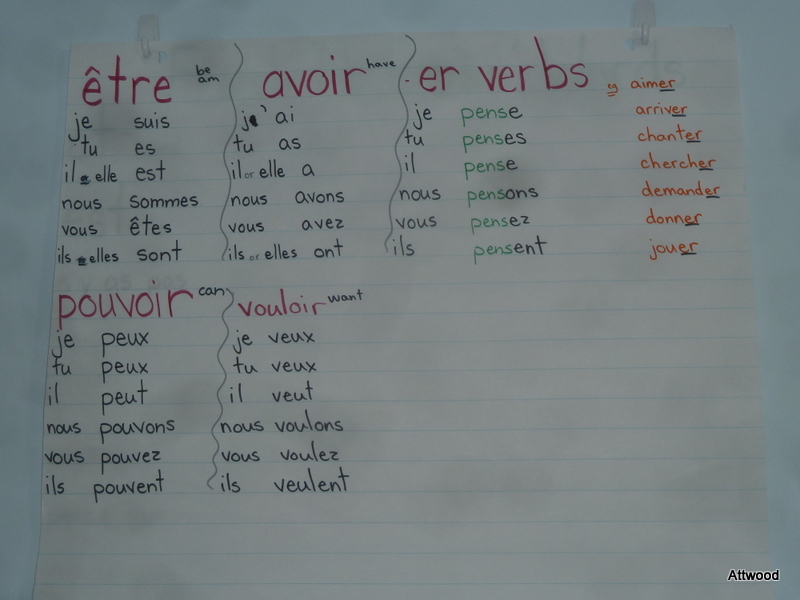 être be am
je suis
tu es
il or elle est
nous sommes
vous êtes
ils or elles sont
avoir have
j'ai
tu as
il or elle a
nous avons
vous avez
ils or elles ont
-er verbs
je pense
tu penses
il pense
nous pensons
vous pensez
ils pensent
eg aimer
arriver
chanter
chercher
demander
donner
jouer
pouvoir can
je peux
tu peux
il peut
nous pouvons
vous pouvez
ils pouvent
vouloir want
je veux
tu veux
il veut
nous voulons
vous voulez
ils veulent
Attwood